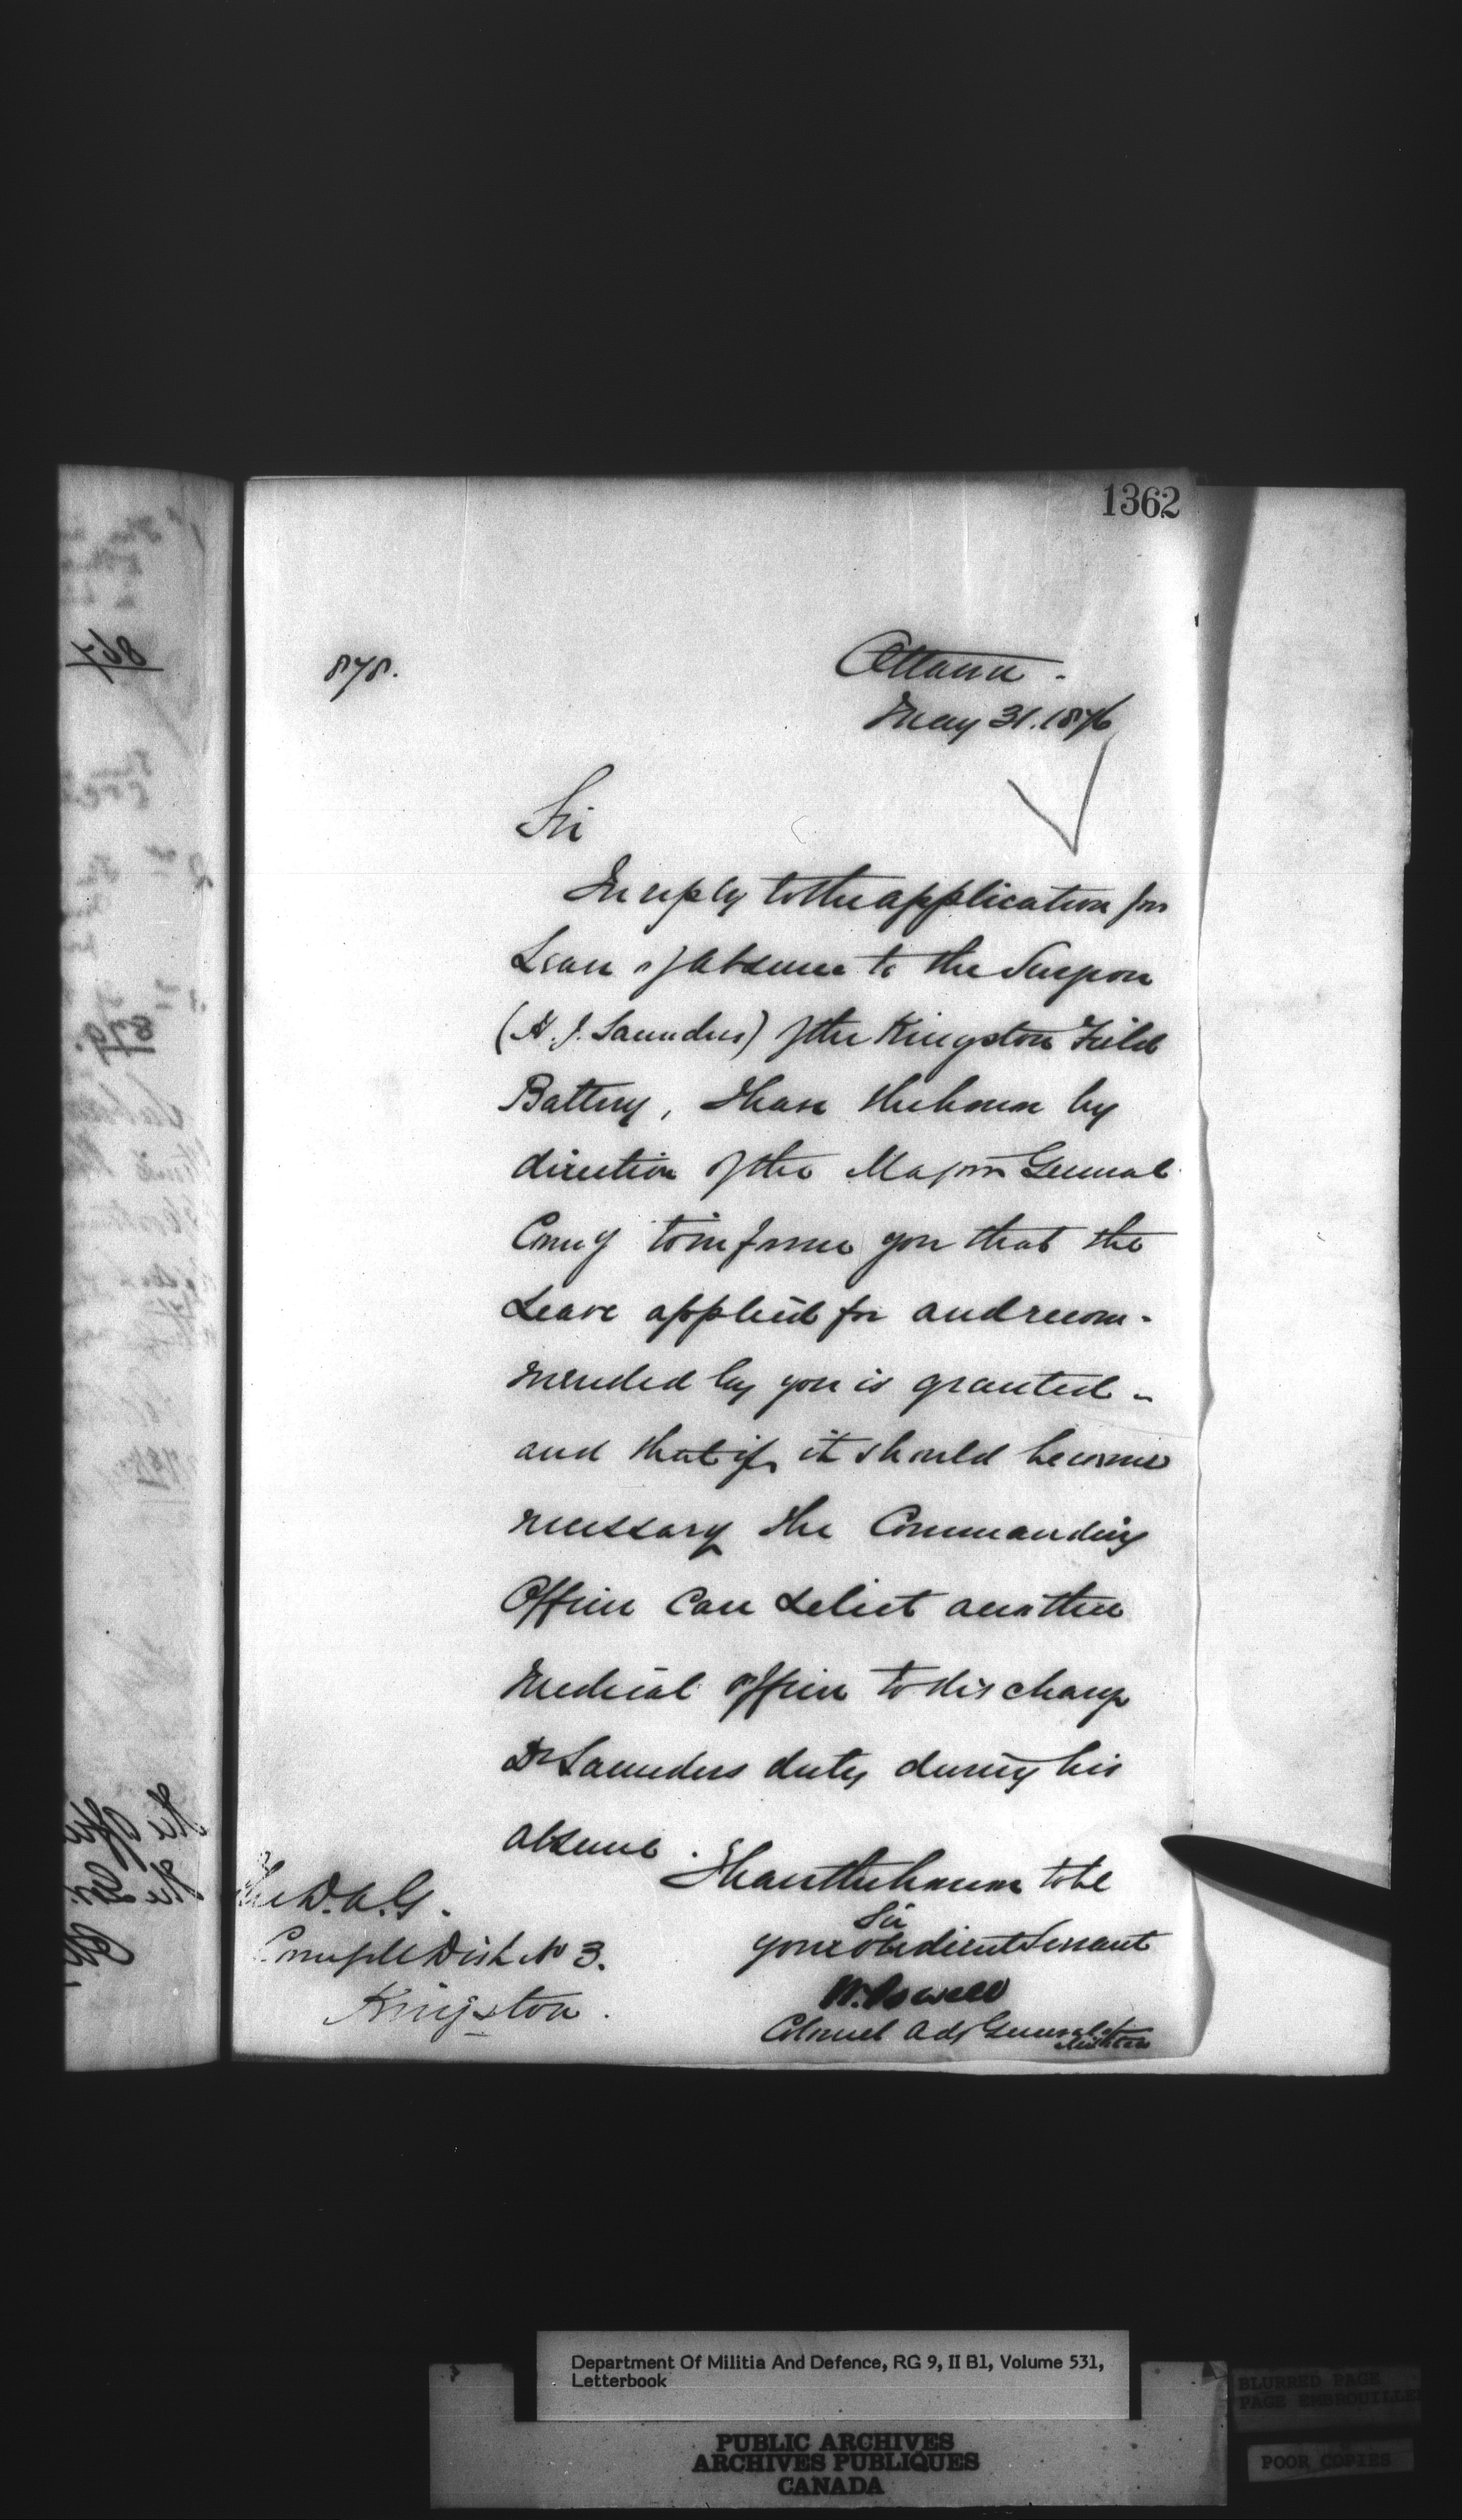 1362
878.
Ottawa -
May 31. 1876
Sir
In reply to the application for
Leave of absence to the Surgeon
(H. J. Saunders) of the Kingston Field
Battery, I have the honor by
direction of the Major General
Comg to inform you that the
Leave applied for and recom-
mended by you is granted -
and that if it should become
necessary the Commanding
Officer can select another
Medical officer to discharge
Dr Saunders duty during his
absence.
I have the honor to be
Sir
your obedient Servant
W. Powell
Colonel Adj General of
Militia
The D.A.G.
Comg Mil Dist No 3.
Kingston.
867
879.
Department Of Militia And Defence, RG 9, II B1, Volume 531,
Letterbook
PUBLIC ARCHIVES
ARCHIVES PUBLIQUES
CANADA
BLURRED PAGE
PAGE EMBROUILLEE
POOR COPIES